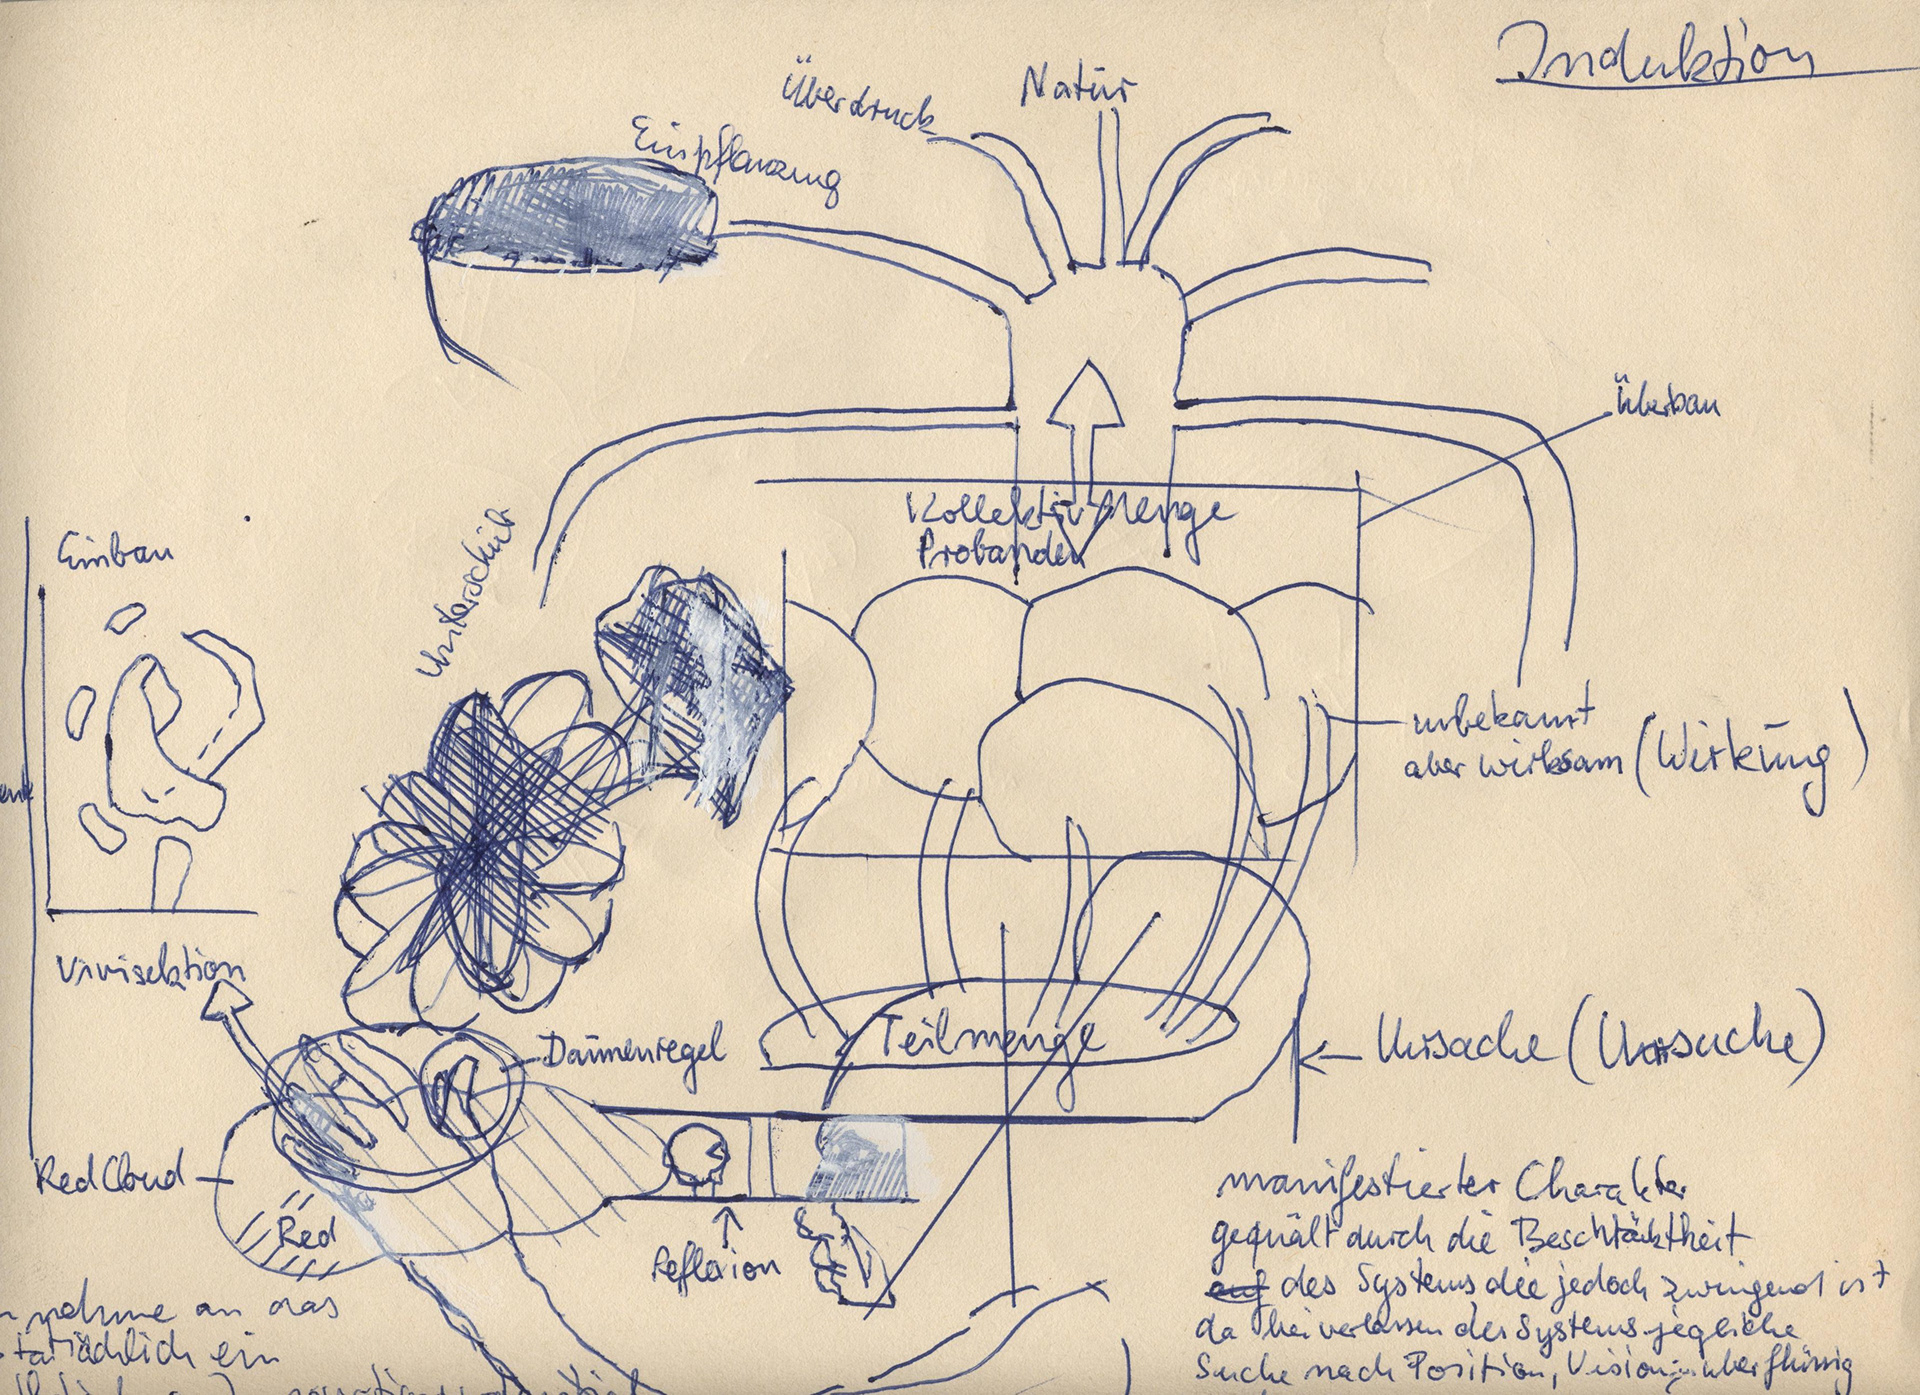 Induktion
Natur
Überdruck
Einpflanzung
Überbau
Kollektiv Menge
Probanden
Unterschub
Einbau
unbekannt
aber wirksam (Wirkung)
Vivisektion
Teilmenge
Daumenregel
Ursache (Ursuche)
Red Cloud
Red
Reflexion
manifestierter Charakter
gequält durch die
des Systems die jedoch zwingend ist
da bei verlassen des Systems jegliche
Suche nach Position, Vision überflüssig
nehme an das
ein